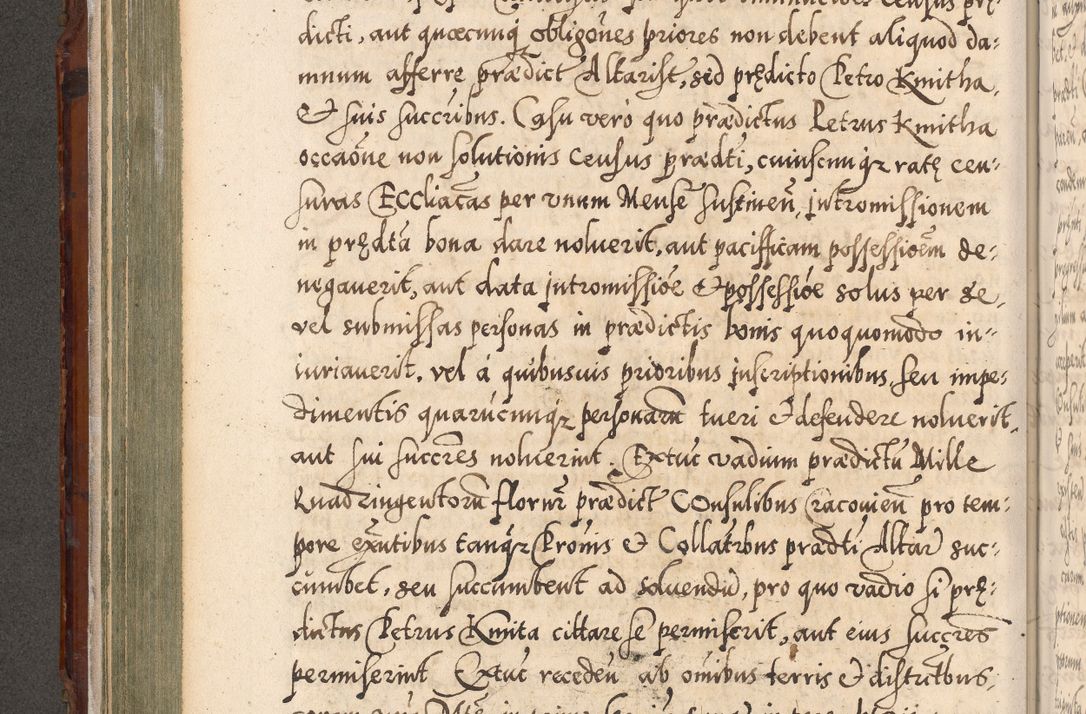 dicti, aut quæcunq; obligões priores non debent aliquod da-
mnum afferre prædict Altarist, sed prędicto Petro Kmitha,
& suis succribus. Casu vero quo prædictus Petrus Kmitha
occaōne non solutionis census prædti, cuiuscunq; ratę cen-
suras Eccliacas per unum Mensē sustineñ, intromissionem
in prędta bona dare noluerit, aut pacifficam possessioēm de-
negauerit, aut data intromissiōe & possessiōe solus per se,
vel submissas personas in prædictis bonis quoquomōdo in-
iuriauerit, vel á quibusuis prioribus inscriptionibus, seu impe-
dimentis quarūcunq; personarū tueri & defendere noluerit,
aut sui succres noluerint. Extūc vadium prædictū Mille
Quadringentorū florn prædict Consulibus Cracouieñ pro tem-
pore exñtibus tanq; Pronis & Collatrbus prædti Altar suc-
cumbet, seu succumbent ad soluendū, pro quo vadio si prę-
dictus Petrus Kmita cittare se permiserit, aut eius succres
permiserint Extūc recedeñ ab omībus terris & districtbus,